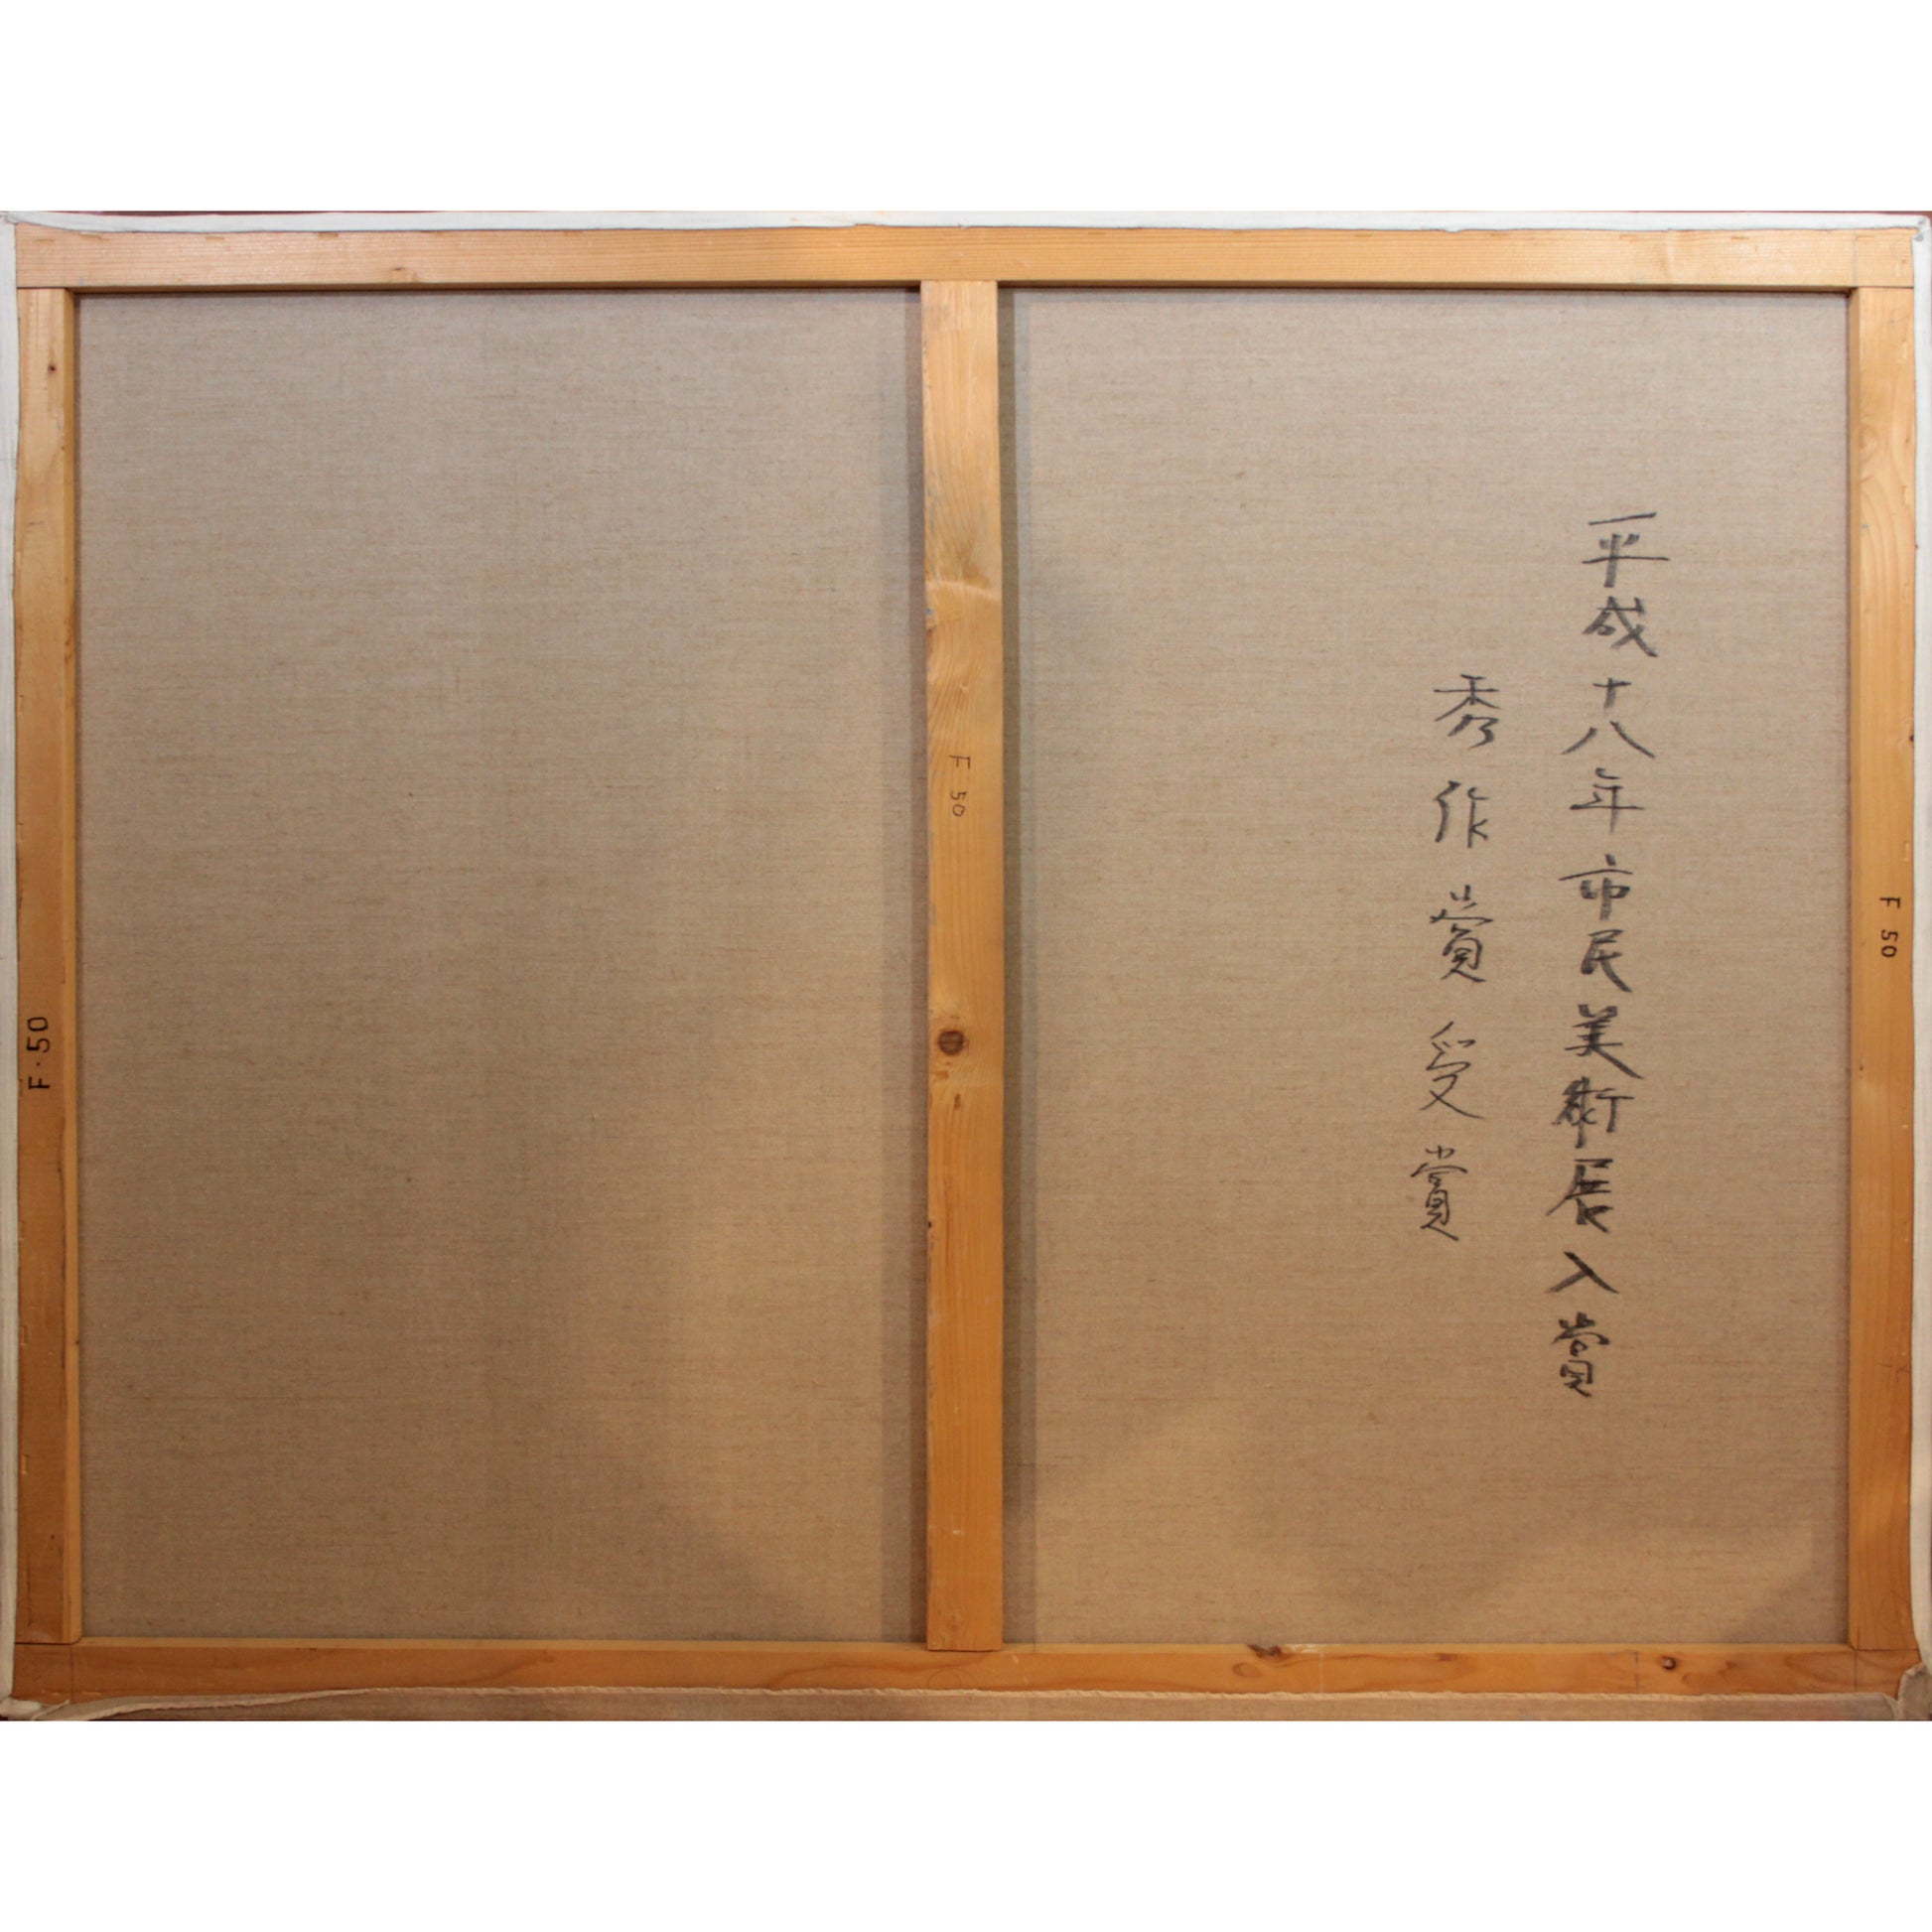 平成十八年市民美術展入賞
秀作賞受賞
F 50
F 50
F・50